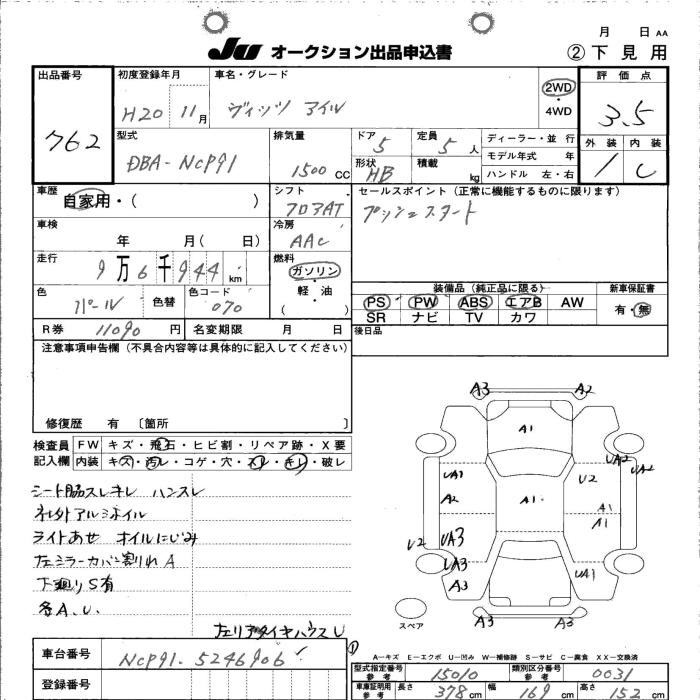 月 日 AA
JU オークション出品申込書 ②下見用
出品番号 初度登録年月 車名・グレード 2WD 評価点
762 H20 11月 ヴィッツ アイル ・4WD 3.5
型式 排気量 ドア 定員 ディーラー・並行 外装 内装
DBA-NCP91 1500CC 5 5人 モデル年式 年 1 C
形状 積載 ハンドル 左・右
HB kg
車歴 シフト セールスポイント(正常に機能するものに限ります)
自家用・( ) フロアAT プッシュスタート
車検 冷房
年 月( 日) AAC
走行 燃料
9万6千944km ガソリン
色 色替 色コード ・軽・油
パール 070 ( )
装備品(純正品に限る) 新車保証書
PS PW ABS エアB AW 有・無
SR ナビ TV カワ
R券 11090円 名変期限 月 日 後日品
注意事項申告欄(不具合内容等は具体的に記入してください)
修復歴 有 〔箇所 〕
検査員 FW キズ・飛石・ヒビ割・リペア跡・X要
記入欄 内装 キズ・汚レ・コゲ・穴・スレ・キレ・破レ
シート脇スレキレ ハンスレ
社外アルミホイル
ライトあせ オイルにじみ
左ミラーカバー割れ A
下廻りS有
各A.U.
左リアタイヤハウスU
A3 A2
A1
UA2 UA2
UA1 U2
A2 A1 A1
A1
U2 UA3
UA3 UA1
A3
A3 A3
スペア
A-キズ E-エクボ U-凹み W-補修跡 S-サビ C-腐食 XX-交換済
車台番号 NCP91-5246906
登録番号
型式指定番号 参考 15010 類別区分番号 参考 0031
車庫証明用 参考 長さ 378cm 幅 169cm 高さ 152cm